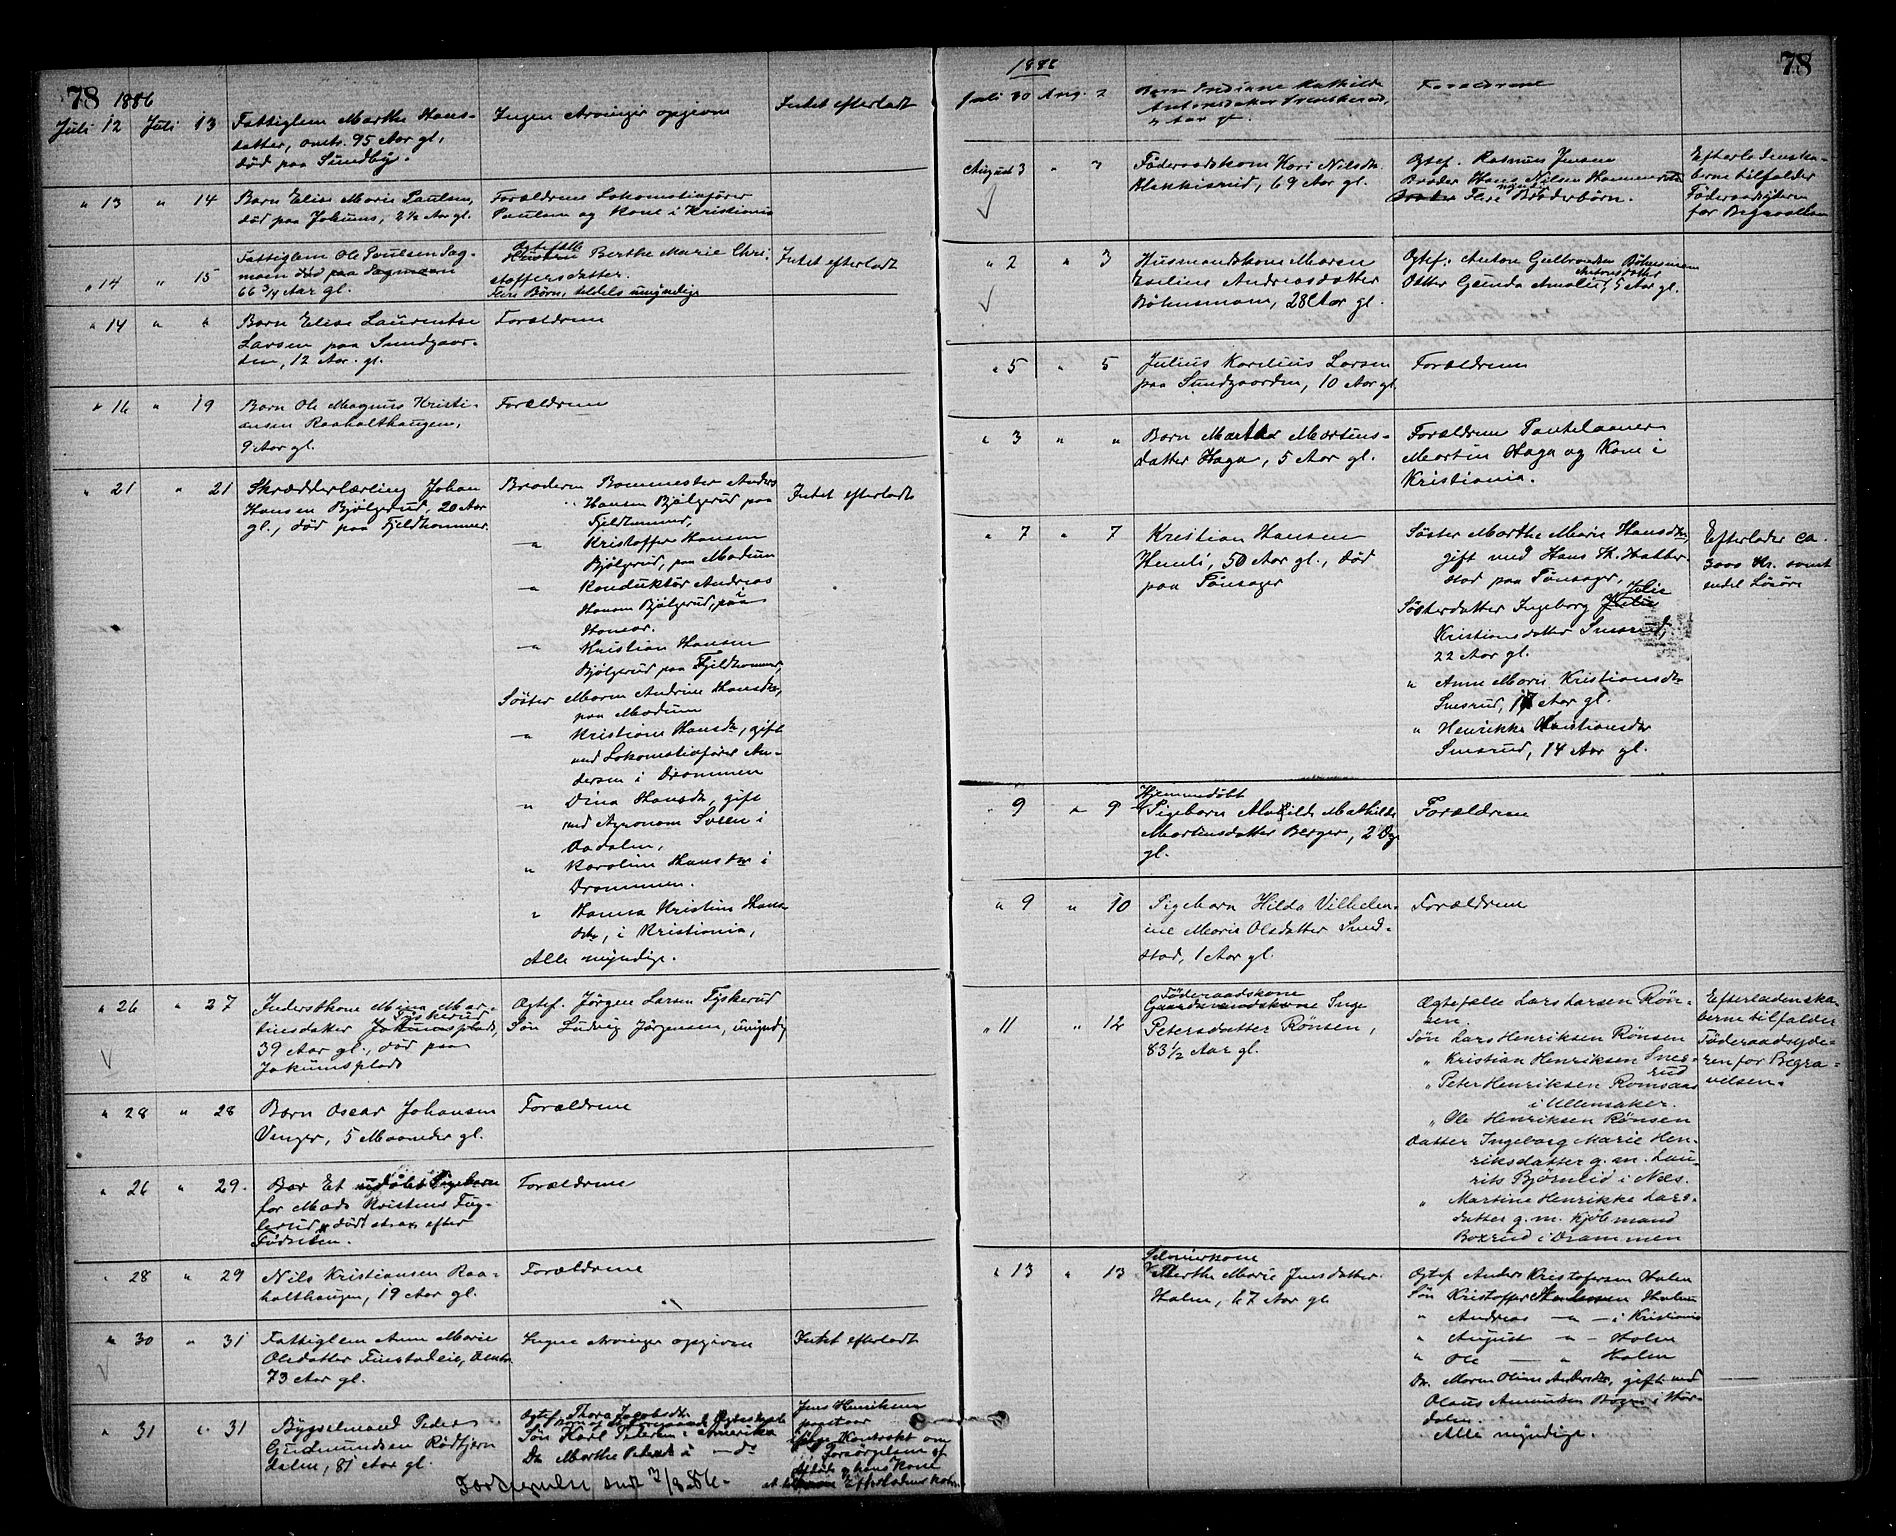 78 1886
Juli 12 Juli 13 Fattiglem Marthe Hans-
datter, omtr. 95 Aar gl,
død paa Sundby.
Ingen Arvinger opgivne
Intet efterladt
" 13 " 14 Barn Elise Marie Paulsen,
død paa Jokums, 2½ Aar gl.
Forældrene Lokomotivfører
Paulsen og Kone i Kristiania
" 14 " 15 Fattiglem Ole Poulsen Sag-
moen død paa Sagmoen
66 3/4 Aar gl.
Ægtefælle
Hustru Berthe Marie Chri-
stoffersdatter.
Flere Børn, tildels umyndige
Intet efterladt
" 14 " " Barn Elise Laurentse
Larsen paa Sundgaar-
den, 12 Aar gl.
Forældrene
" 16 " 19 Barn Ole Magnus Kristi-
ansen Raaholthaugen,
9 Aar gl.
Forældrene
" 21 " 21 Skrædderlærling Johan
Hansen Bjølgerud, 20 Aar
gl., død paa Fjeldhammer.
Broderen Banemester Anders
Hansen Bjølgerud paa
Fjeldhammer,
— " Kristoffer Hansen
Bjølgerud, paa Modum
— " Konduktør Andreas
Hansen Bjølgerud, paa
Hamar.
— " Kristian Hansen
Bjølgerud paa Fjeldhammer,
Søster Maren Andrine Hansdtr,
paa Modum
— " Kristiane Hansdtr, gift
med Lokomotivfører An-
dersen i Drammen
" Dina Hansdtr, gift
med Agronom Sveen i
Aadalen,
" Karoline Hansdtr i
Drammen.
" Hanna Kristine Hans-
dtr, i Kristiania,
Alle myndige.
Intet efterladt
" 26 " 27 Inderstkone Mina Mar-
tinsdatter Jokumsplads, Tyskerud
39 Aar gl., død paa
Jokumsplads
Ægtef. Jørgen Larsen Tyskerud
Søn Ludvig Jørgensen, umyndig
" 28 " 28 Barn Oscar Johansen
Venger, 5 Maaneder gl.
Forældrene
" 26 " 29. Bar Et udøbt Pigebarn
for Mads Kristens Fug-
lerud, død strax efter
Fødselen.
Forældrene
" 28 " 29 Nils Kristiansen Raa-
holthaugen, 19 Aar gl.
Forældrene
" 30 " 31 Fattiglem Anne Marie
Olsdatter Finstadeie, Omtr.
73 Aar gl.
Ingen Arvinger opgivne
Intet efterladt
" 31 " 31 Bygselmand Peder
Gudmundsen Rødtjern
dalen, 81 Aar gl.
Ægtef. Thora Jacobsdtr.
Søn Karl Pedersen i Amerika
Da Marthe Pedersd i — do
Jens Henriksen
paastaar
ifølge Kontrakt om
Forsørgelsen af
Afdøde og hans Kone
at Efterladenskaben
1886
78
Juli 30 Aug. 2 Barn Indiane Mathilde
Antonsdatter
2 Aar gl.
Forældrene
August 3 " 3 Føderaadskone Kari Nilsdtr.
Blekkisrud, 69 Aar gl.
Ægtef. Rasmus Jensen
Broder Hans Nilsen
Flere Broderbørn.
Efterladenska-
berne tilfalder
Føderaadsyderen
for Begravelsen
" 2 " 3 Husmandskone Maren
Eveline Andreasdatter
Bøhnsmoen, 28 Aar gl.
Ægtef. Anton Gulbrandsen Bøhnsmoen
Datter Gunda Amalie Antonsdatter, 5 Aar gl.
" 5 " 5 Julius Karelius Larsen
paa Sundgaarden, 10 Aar gl.
Forældrene
" 3 " " Barn Marthe Martins-
datter Haga, 5 Aar gl.
Forældrene Pantelaaner
Martin Haga og Kone i
Kristiania.
" 7 " 7 Kristian Hansen
Hemli, 50 Aar gl., død
paa Tønsager
Søster Marthe Marie Hansdtr,
gift med Hans H. Hatter-
stad paa Tønsager,
Søsterdatter Ingeborg Julie
Kristiansdatter Smesrud,
22 Aar gl.
" Anne Marie Kristiansdtr
Smesrud, 17 Aar gl.
" Henrikke Kristiansdtr
Smesrud, 14 Aar gl.
Efterlader ca.
3000 Kr. samt
endel Løsøre
" 9 " 9 Hjemmedøbt
Pigebarn Mathilde
Martinsdatter Berger, 2 Dg.
gl.
Forældrene
" 9 " 10 Pigebarn Hilda Vilhelm-
ine Marie Olsdatter Sund-
stad, 1 Aar gl.
Forældrene
" 11 " 12 Føderaadskone
Gaardmandskone Inge
Petersdatter Rønsen,
83 1/2 Aar gl.
Ægtefælle Lars Larsen Røn-
sen.
Søn Lars Henriksen Rønsen
" Kristian Henriksen Smes-
rud
" Peter Henriksen Romsaas
i Ullensaker.
" Ole Henriksen Rønsen
Datter Ingeborg Marie Hen-
riksdatter g. m. Lau-
rits Bjørnlid i Næs.
" Martine Henrikke Lars-
datter g. m. Kjøbmand
Boxrud i Drammen
Efterladenska-
berne tilfalder
Føderaadsyde-
ren for Begra-
velsen.
" 13 " 13 Selveierkone
Berthe Marie Jensdatter
Holm, 67 Aar gl.
Ægtef Anders Kristofersen Holm
Søn Kristoffer Andersen Holm
" Andreas — " — i Kristiania
" August — " — Holm
" Ole — " Holm
Da. Maren Oline Andersdtr., gift med
Olaus Amundsen
Alle myndige.